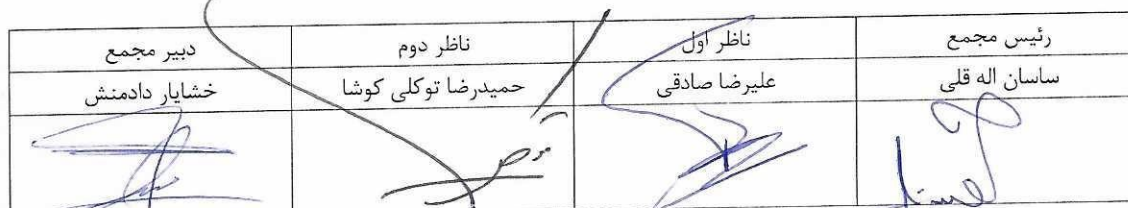 رئیس مجمع ناظر اول ناظر دوم دبیر مجمع
ساسان اله قلی علیرضا صادقی حمیدرضا توکلی کوشا خشایار دادمنش